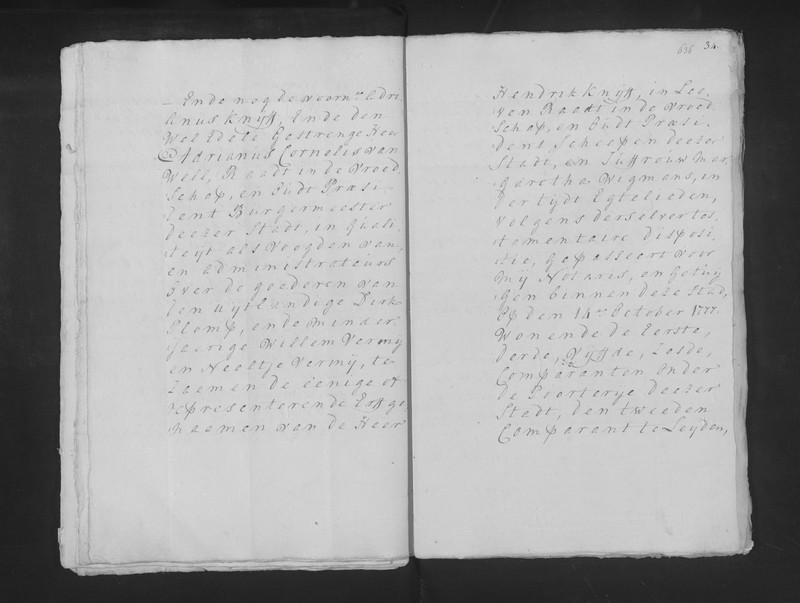 – Ende nog de voorn.^de Adri
anus Knijff, Ende den
Wel Edele Gestrenge Heer
Adrianus Cornelis van
Well, Raadt in de Vroed
Schap, en Oudt Præsi
dent Burgermeester
deezer Stadt, in quali
teijt als Voogden van
en administrateurs
Over de goederen van
den uijtlandige Dirk
Plomp, ende minder
Jaerige Willem Vermij
en Neeltje Vermij, te
Zaemen de eenige of
representerende Erffge
naemen van de Heer
636 34.
Hendrik Knijff, in Lee
ven Raadt in de Vroed
Schap, en Oudt Præsi
dent Scheepen deezer
Stadt, en Juffrouw Mar
garetha Wigmans, in
der tijdt Egtelieden,
volgens derselver tes
tamentaire disposi
tie, gepasseert voor
mij Notaris, en getuij
gen binnen deze Stad,
Op den 14^en October 1777.
Wonende de Eerste,
derde, Vijffde, Zesde,
Comparanten Onder
de Poorterye deezer
Stadt, den tweeden
Comparant te Leyden,